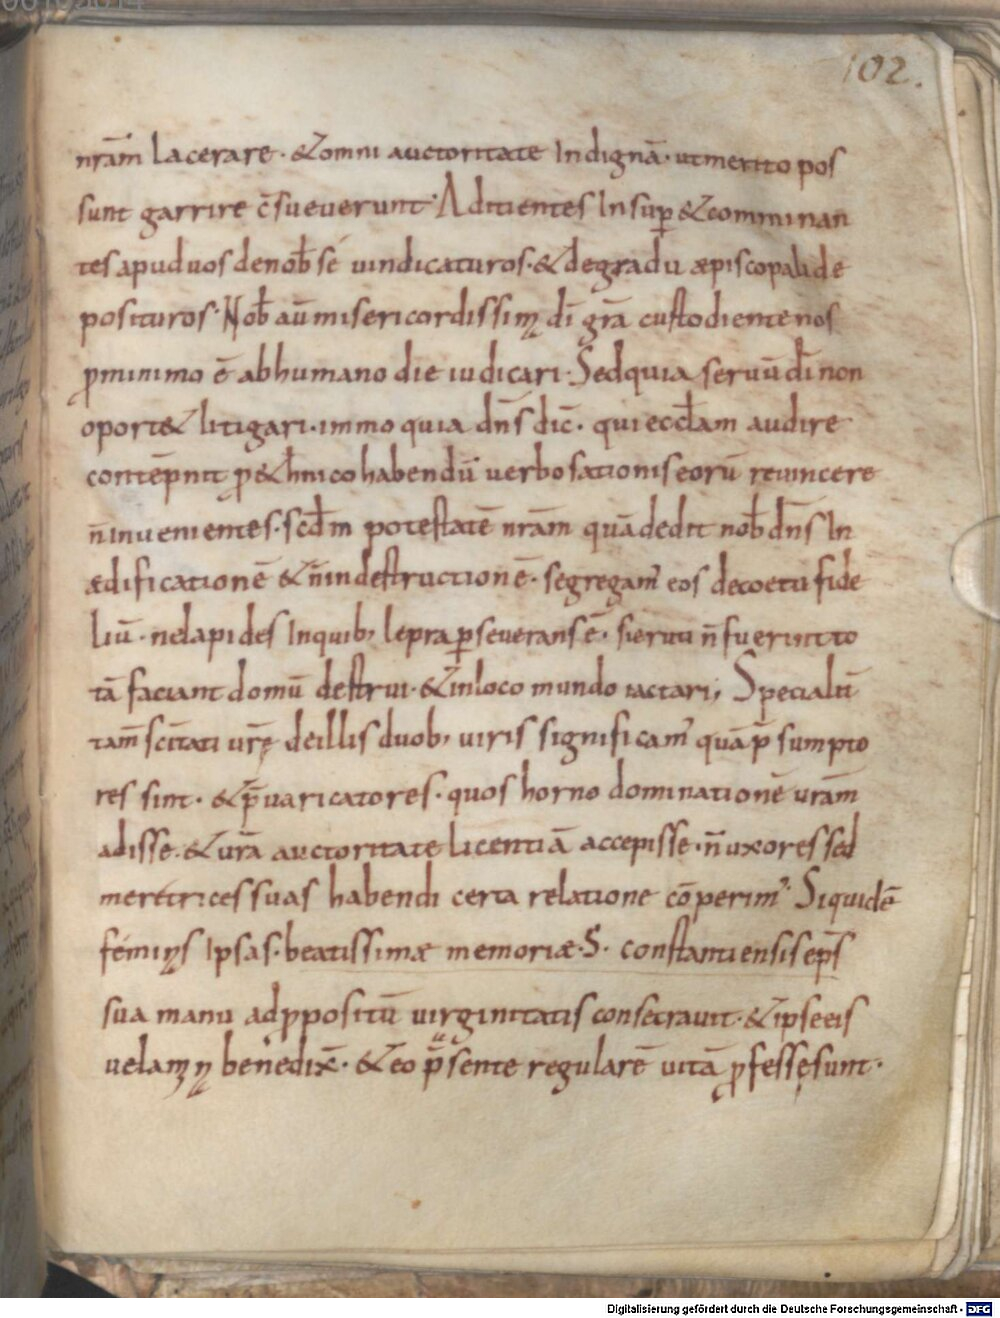 102.
nr̄am lacerare · &omni auctoritate Indignā · utmerito pos
sunt garrire c̄sueuerunt · Aditientes Insup̱ &comminan
tes apuduos denob̄ sé uindicaturos · &degradu æpiscopali de
posituros · Nob̄ aūmisericordissim d̄i gr̄a custodiente nos
ꝓminimo ē abhumano die iudicari · Sedquia seruūd̄i non
oport& litigari · immo quia dn̄s dic̄ · qui eccl̄am audire
contēpnit ꝓ&hnicohabendū uerbosationiseorū reuincere
n̄inuenientes · scd̄m potestatē nr̄am quādedit nob̄ dn̄s In
ædificationē &n̄indestructionē · segregam᾽ eos decoetu fide
liū · nelapides Inquib; lepra ꝑseueransē · sieruti n̄fuerint to
tā faciant domū destrui · &inloco mundo iactari; Specialit̄
tam̄ sc̄itati ur̄ę deillis duob; uiris significam᾽ quāp̄sumpto
res sint · &p̄uaricatores · quos horno dominationē ur̄am
adisse · &ur̄a auctoritate licentiā accepisse · n̄uxores sed
meretrices suas habendi certa relatione cōperim᾽ · Siquidē
féminas Ipsas · beatissimæ memoriæ · S · constantiensis ep̄s
sua manu adꝓpositū uirginitatis consecrauit · &ipse eis
uelamen benedix̄ · &eo p̄sente regularē uitā ꝓfessęsunt ·
Digitalisierung gefördert durch die Deutsche Forschungsgemeinschaft - DFG